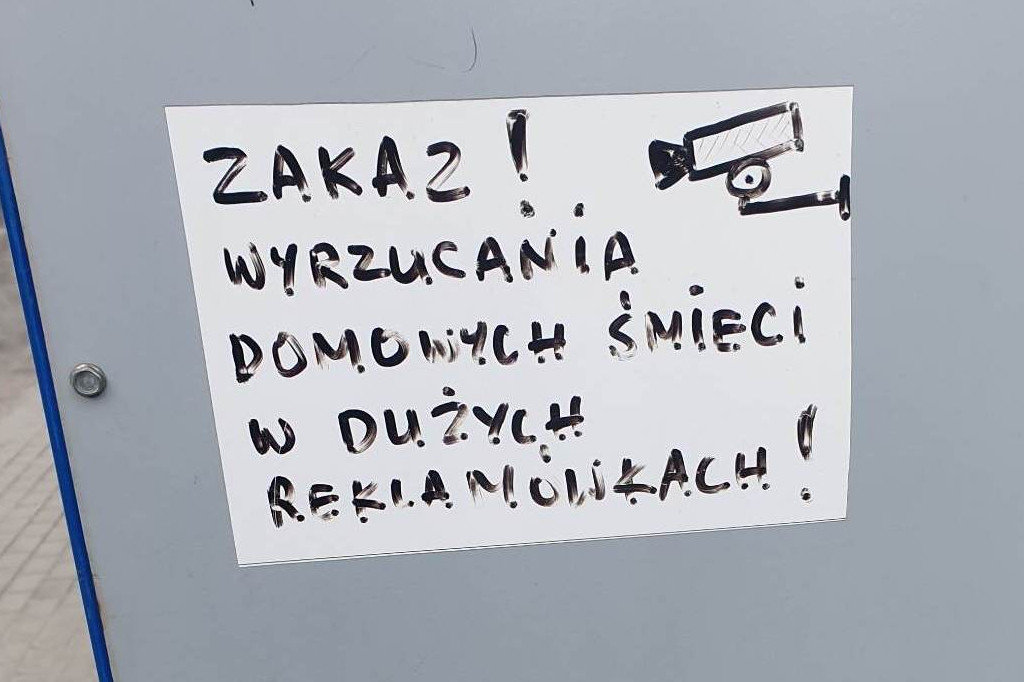 ZAKAZ!
WYRZUCANIA
DOMOWYCH ŚMIECI
W DUŻYCH
REKLAMÓWKACH!